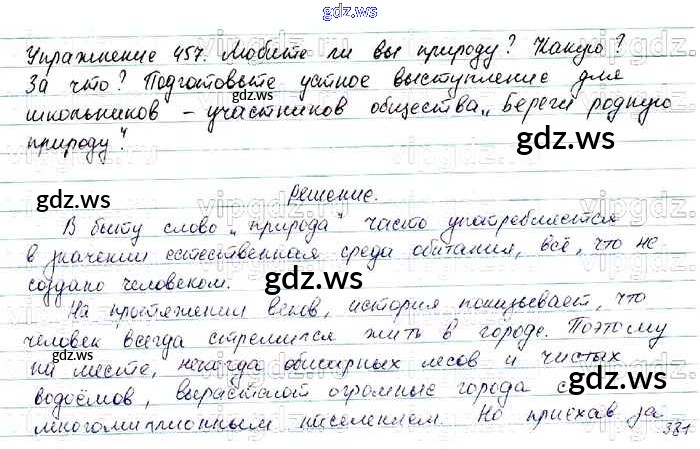 gdz.ws
Упражнение 457. Любите ли вы природу? Какую?
За что? Подготовьте устное выступление для
gdz.ws
школьников – участников общества „Береги родную
природу".
gdz.ws
gdz.ws
Решение.
В быту слово „природа" часто употребляется
в значении естественная среда обитания, всё, что не
создано человеком.
gdz.ws
На протяжении веков, история показывает, что
человек всегда стремился жить в городе. Поэтому
на месте, некогда обширных лесов и чистых
gdz.ws
водоёмов, вырастают огромные города с
gdz.ws
многомиллионным населением. Но приехав за
gdz.ws
381